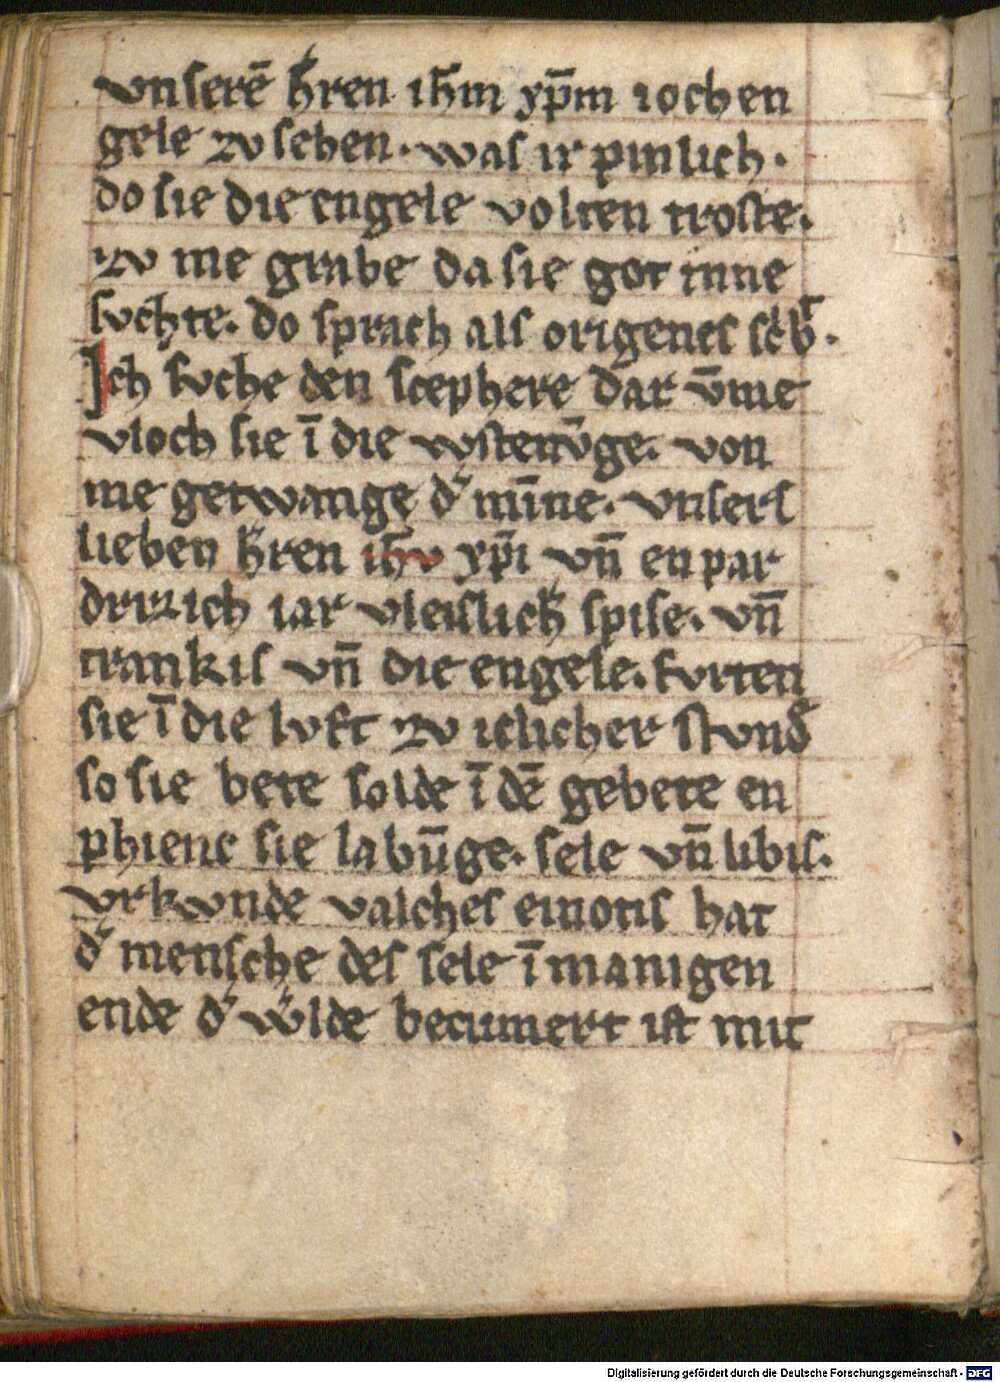 vnserē h̄ren ih̄m xp̄m ioch en
gele zv sehen. was ir pinlich.
do sie die engele volten troste.
zv me grabe da sie got inne
svchte. do sprach als origenes sc̄b̄.
Ich svche den scephere dar v̄me
vloch sie ī die wstenv̄ge. von
me getwange d̾ mīne. vnsers
lieben h̄ren ih̄v xp̄i vn̄ enpar
drizich iar vleislich̄ spise. vn̄
trankis vn̄ die engele. fvrten
sie ī die lvft zv iclicher stvnd̾
so sie bete solde ī dē gebete en
phienc sie labūge. sele vn̄ libis.
vrkvnde valches einotis hat
d̾ mensche des sele ī manigen
ende d̾ w̾lde becumert ist mit
Digitalisierung gefördert durch die Deutsche Forschungsgemeinschaft - DFG